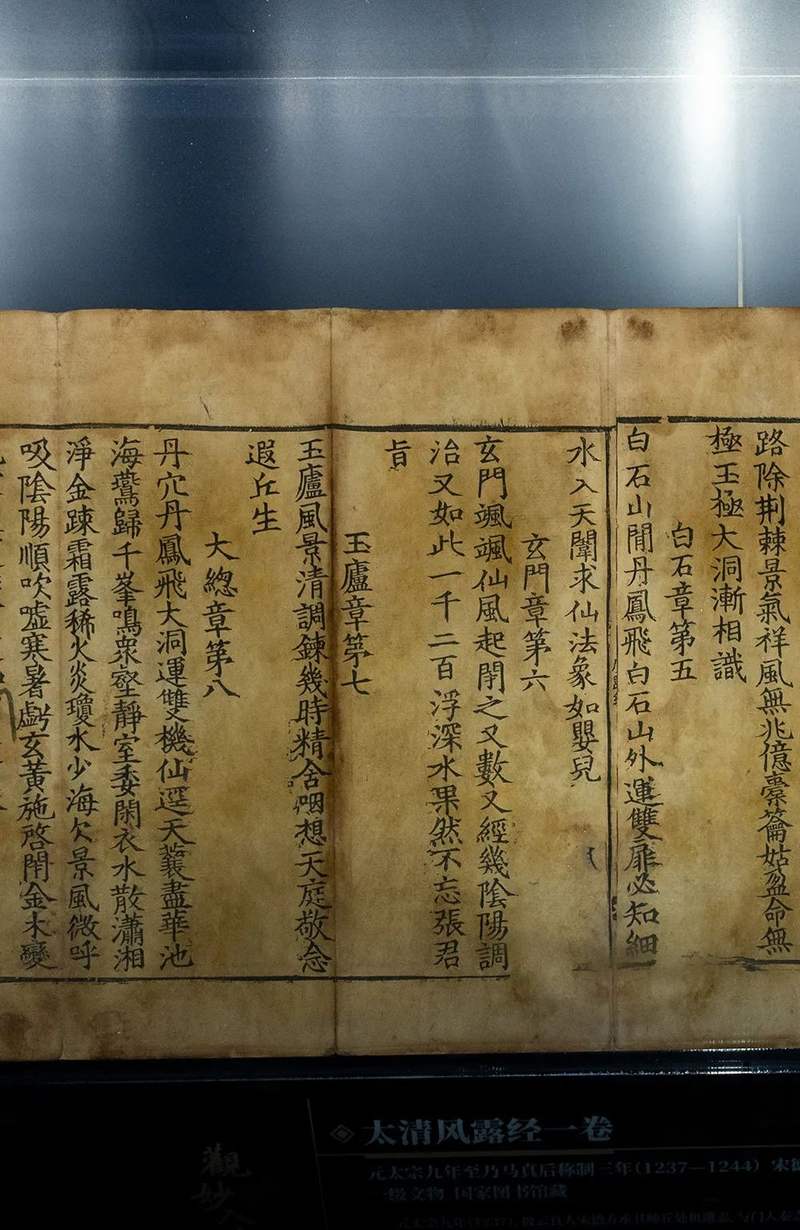 路除荆棘景氣祥風無兆億橐籥姑盈命無
極玉極大洞漸相識
白石章第五
白石山閒丹鳳飛白石山外運雙扉必知細
水入天闈求仙法象如嬰兒
玄門章第六
玄門颯颯仙風起閉之又數又經幾陰陽調
治又如此一千二百浮深水果然不忘張君
旨
玉廬章第七
玉廬風景清調鍊幾時精舍咽想天庭敬念
遐丘生
大總章第八
丹穴丹鳳飛大洞運雙機仙逕天蓑盡華池
海鶩歸千峯鳴衆壑靜室委閑衣水散瀟湘
淨金踈霜露稀火炎瓊水少海欠景風微呼
吸陰陽順吹噓寒暑虧玄黃施啓閉金木變
太清风露经一卷
元太宗九年至乃马真后称制三年(1237—1244) 宋德
一级文物 国家图书馆藏
觀妙